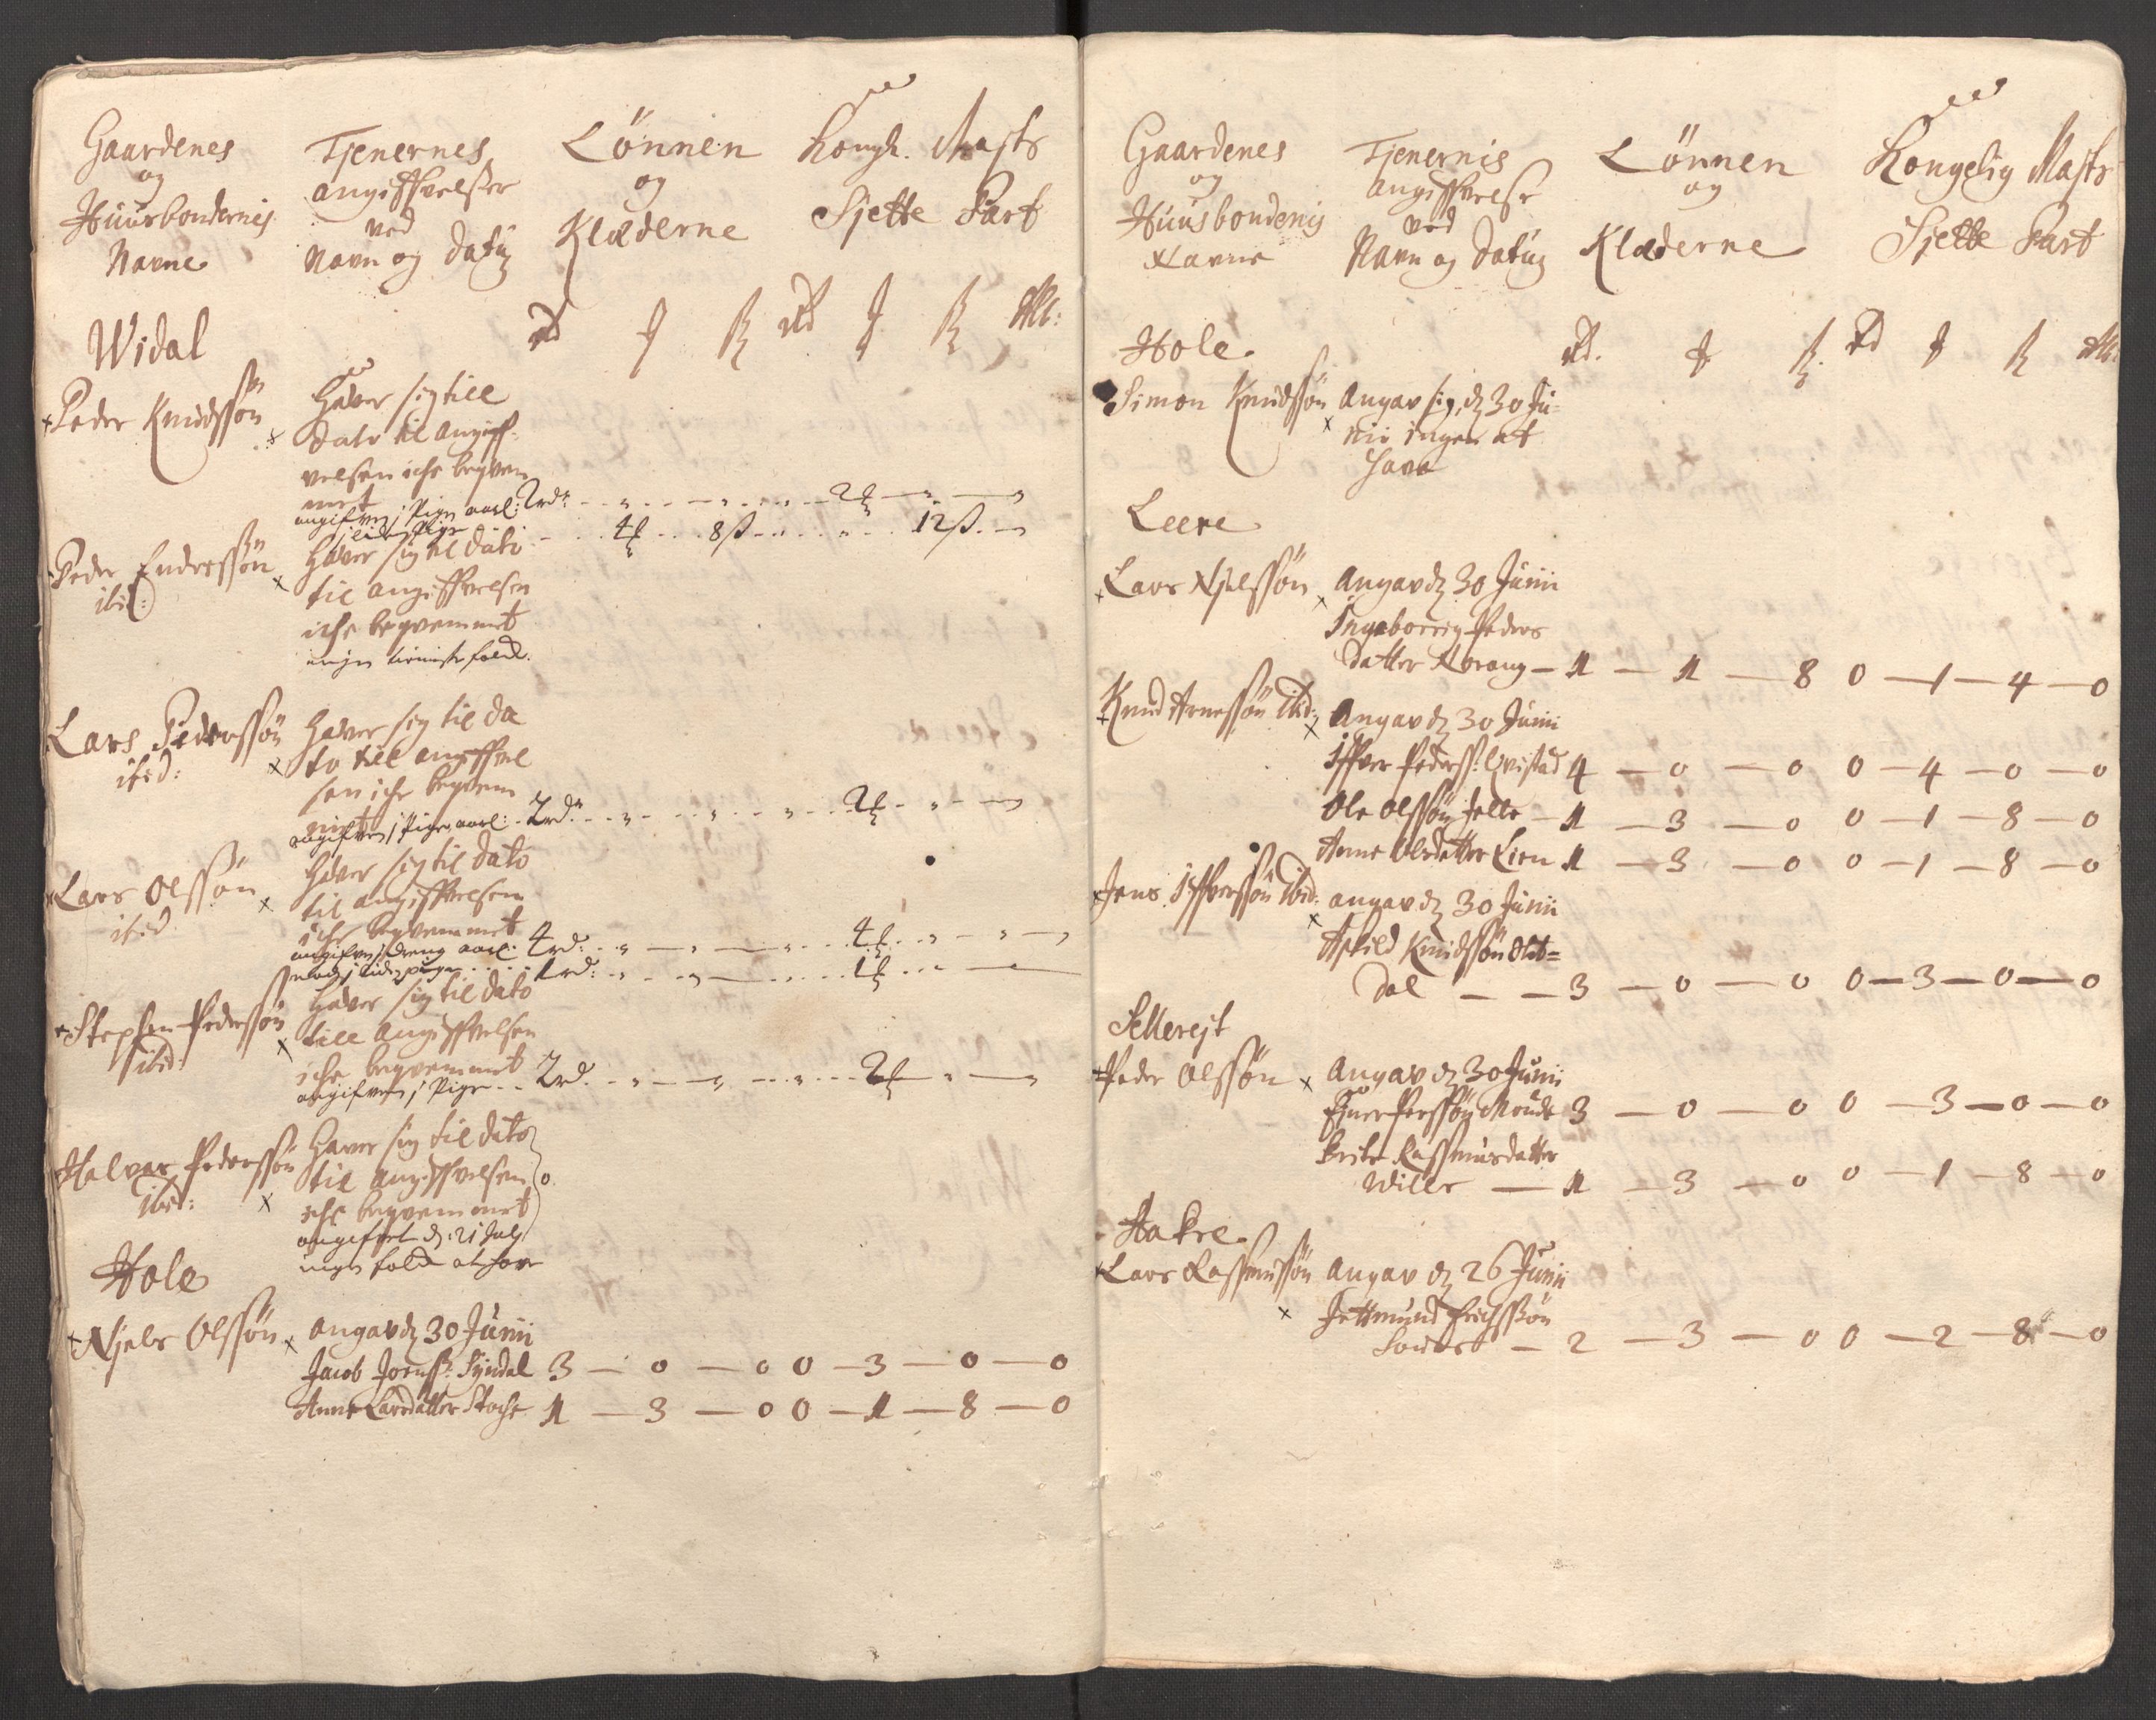 Gaardenes
og
Huusbondernis
Navne
Tjenernes
angiffvelser
ved
Navn og Datum
Lönnen
og
Klæderne
Kongl. Majts
Sjette Part
Rd ß Rd ß Alb:
Widal
Peder Knudssön
Haver sig till
Dato til angiff-
velsen iche beqvem
met
angifven j Pige aarl: 2 rdr
8 ß 12 ß
Peder Enderssön
ibid:
Haver sig til Dato
til angiffvelsen
iche beqvemmet
ingen tienistefolck.
Lars Pederssön
ibid:
Haver sig til Da
to till angiffvel
sen iche beqvem
met
angifven j Pige aarl: 2 rdr
Lars Olssön
ibid
Haver sig til Dato
til angiffvelsen
iche beqvemmet
angifven j dreng aarl: 4 rd:
1 rd:
Stephen Pederssön
ibid:
Haver sig til Dato
till angiffvelsen
iche beqvemmet
angifven j Pige 2 rd.
Halvar Pederssön
ibid:
Haver sig til Dato
til angiffvelsen
iche beqvemmet
angifvet d. 21 July
ingen folck at have
0
Hole
Njels Olssön
angav dn 30 Junii
Jacob Joenss: Syndal 3 — 0 — 0 0 — 3 — 0 — 0
Anne Larsdatter Stoche 1 — 3 — 0 0 — 1 — 8 — 0
Gaardenes
og
Huusbondenis
Navne
Tjenernis
angiffvelse
ved
Navn og Datum
Lönnen
og
Klæderne
Kongelig Majts
Sjette Part
Rd. ß. Rd ß Alb.
Hole
Simon Knudssön
Angav sig dn 30 Ju-
nii ingen at
have
Leere
Lars Njelssön
Angav dn 30 Junii
Ingeborrig Peders
datter Norang — 1 — 1 — 8 0 — 1 — 4 — 0
Knud Arnessön ibid:
Angav dn 30 Junii
Iffver Pederss: Qvistad 4 — 0 — 0 0 — 4 — 0 — 0
Ole Olssön Jelle — 1 — 3 — 0 0 — 1 — 8 — 0
Anne Olsdatter Lien 1 — 3 — 0 0 — 1 — 8 — 0
Jens Iffverssön ibid:
angav dn 30 Junii
Askild Knudssön
dal — — 3 — 0 — 0 0 — 3 — 0 — 0
Sellerejt
Peder Olssön
Angav dn 30 Junii
3 — 0 — 0 0 — 3 — 0 — 0
Brite Rassmusdatter
Wille — 1 — 3 — 0 0 — 1 — 8 — 0
Aakre
Lars Rassmussön
Angav dn 26 Junii
Jettmund Erichssön
— 2 — 3 — 0 0 — 2 — 8 — 0